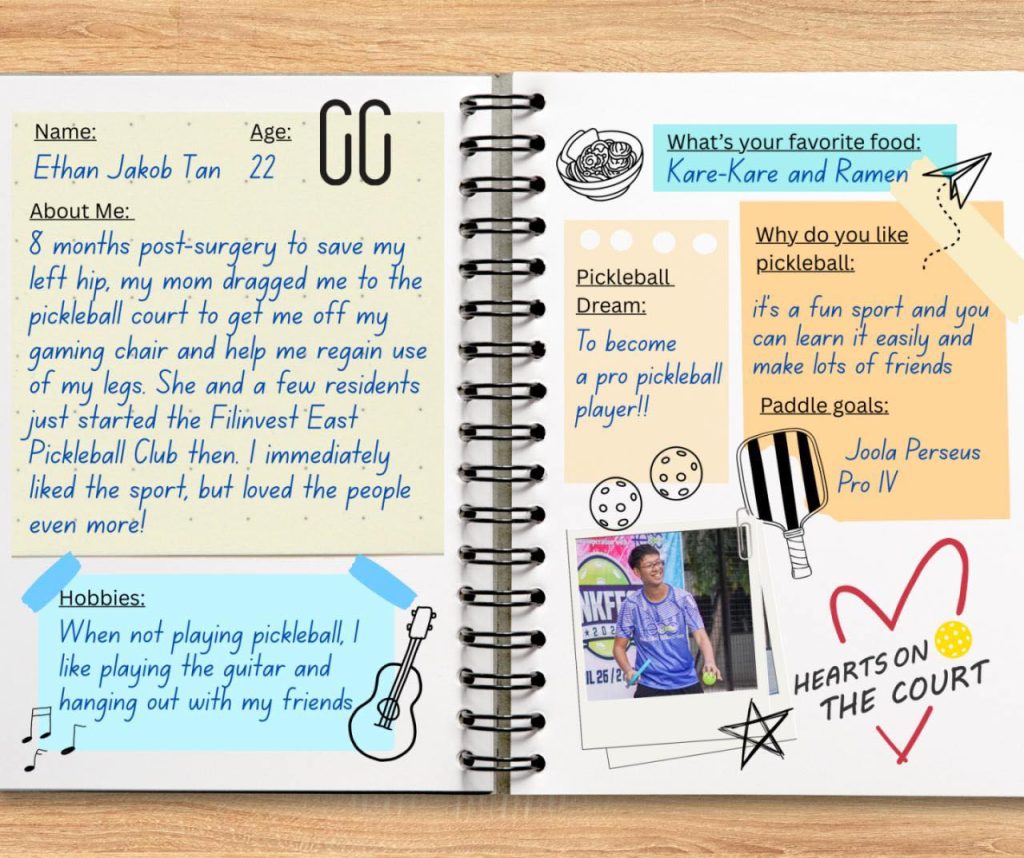 Name:
Age:
Ethan Jakob Tan
22
About Me:
8 months post-surgery to save my
left hip, my mom dragged me to the
pickleball court to get me off my
gaming chair and help me regain use
of my legs. She and a few residents
just started the Filinvest East
Pickleball Club then. I immediately
liked the sport, but loved the people
even more!
Hobbies:
When not playing pickleball, I
like playing the guitar and
hanging out with my friends
What's your favorite food:
Kare-Kare and Ramen
Pickleball
Dream:
To become
a pro pickleball
player!!
Why do you like
pickleball:
it's a fun sport and you
can learn it easily and
make lots of friends
Paddle goals:
Joola Perseus
Pro IV
NKFES
202
IL 25 / 2
HEARTS ON
THE COURT